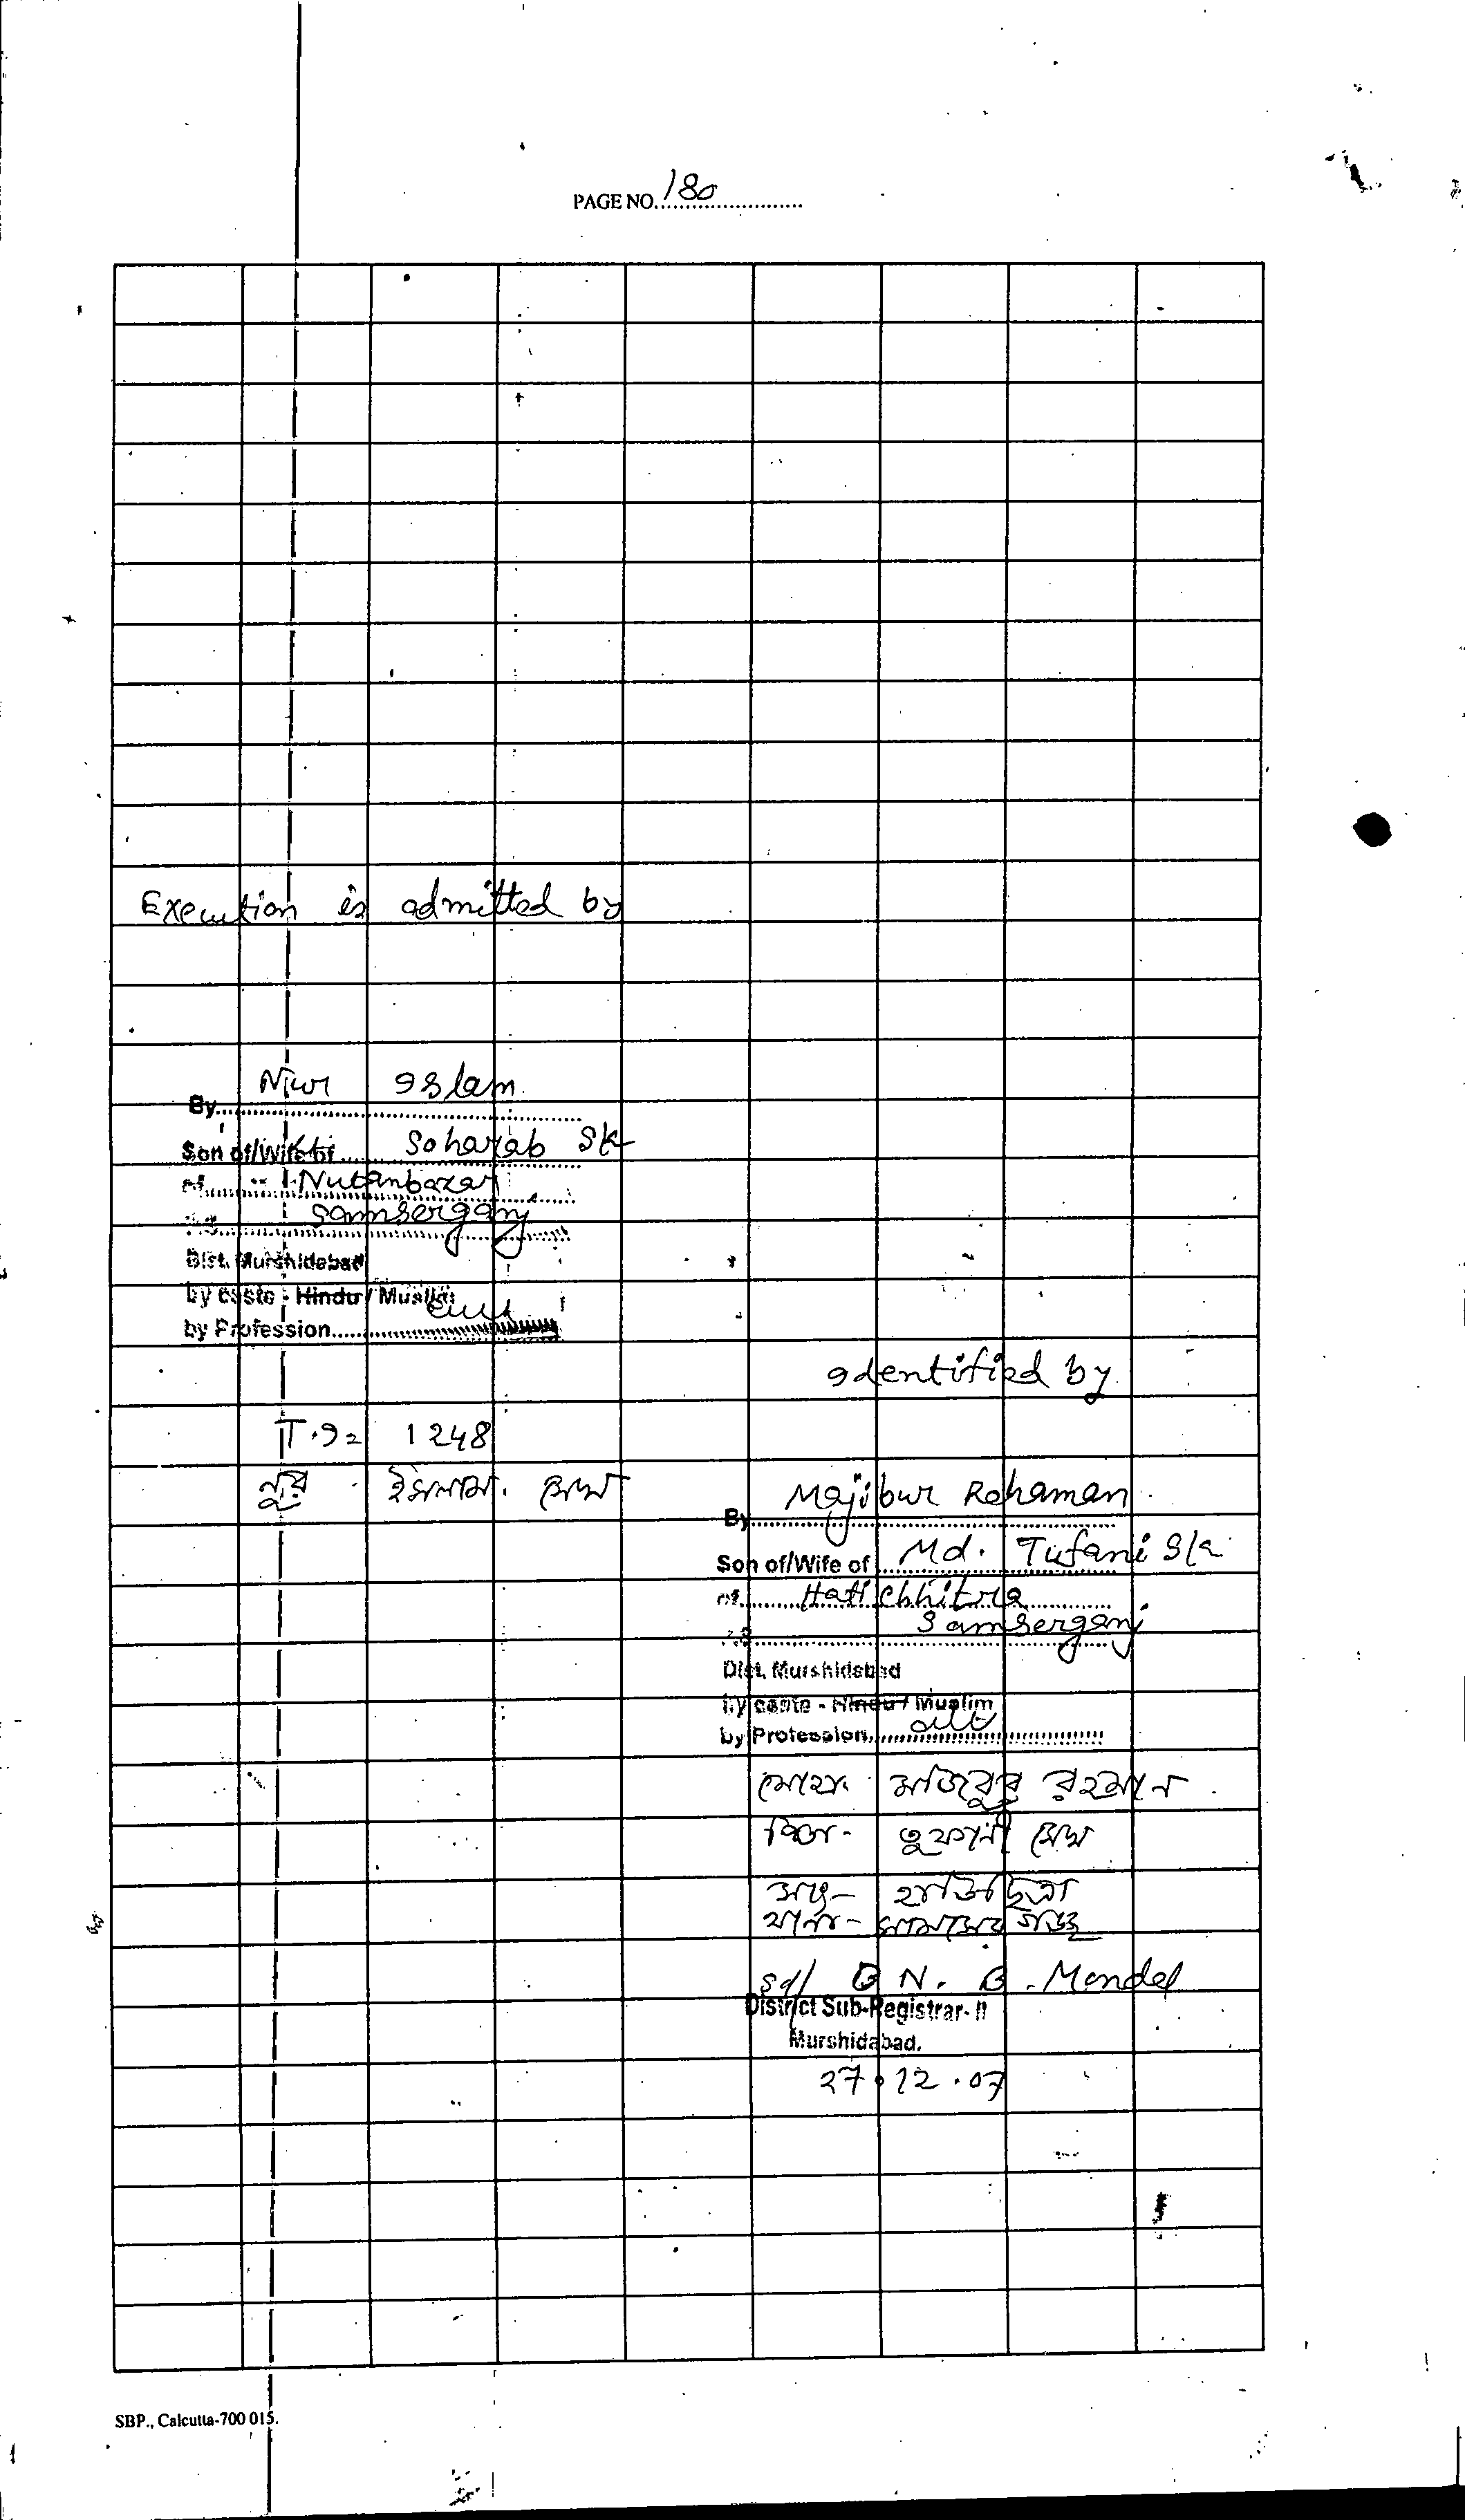 PAGE NO. 180
Execution is admitted by
By Nur Islam
Son of/Wife of Soharab Sk
of Nutanbazar
Samserganj
Dist. Murshidabad
by caste - Hindu / Muslim
by Profession
T.I = 1248
নুর ইসলাম সেখ
Identified by
By Majibur Rahaman
Son of/Wife of Md. Tufani Sk
of Hatichhitra
P.S Samserganj
Dist. Murshidabad
by caste - Hindu / Muslim
by Profession
মোহাঃ মজিবুর রহমান
পিতা- তুফানী সেখ
সাং- হাতিছিত্রা
থানা- সামসেরগঞ্জ
Sd/ N. B. Mandal
District Sub-Registrar- II
Murshidabad.
27.12.07
SBP., Calcutta-700 015.